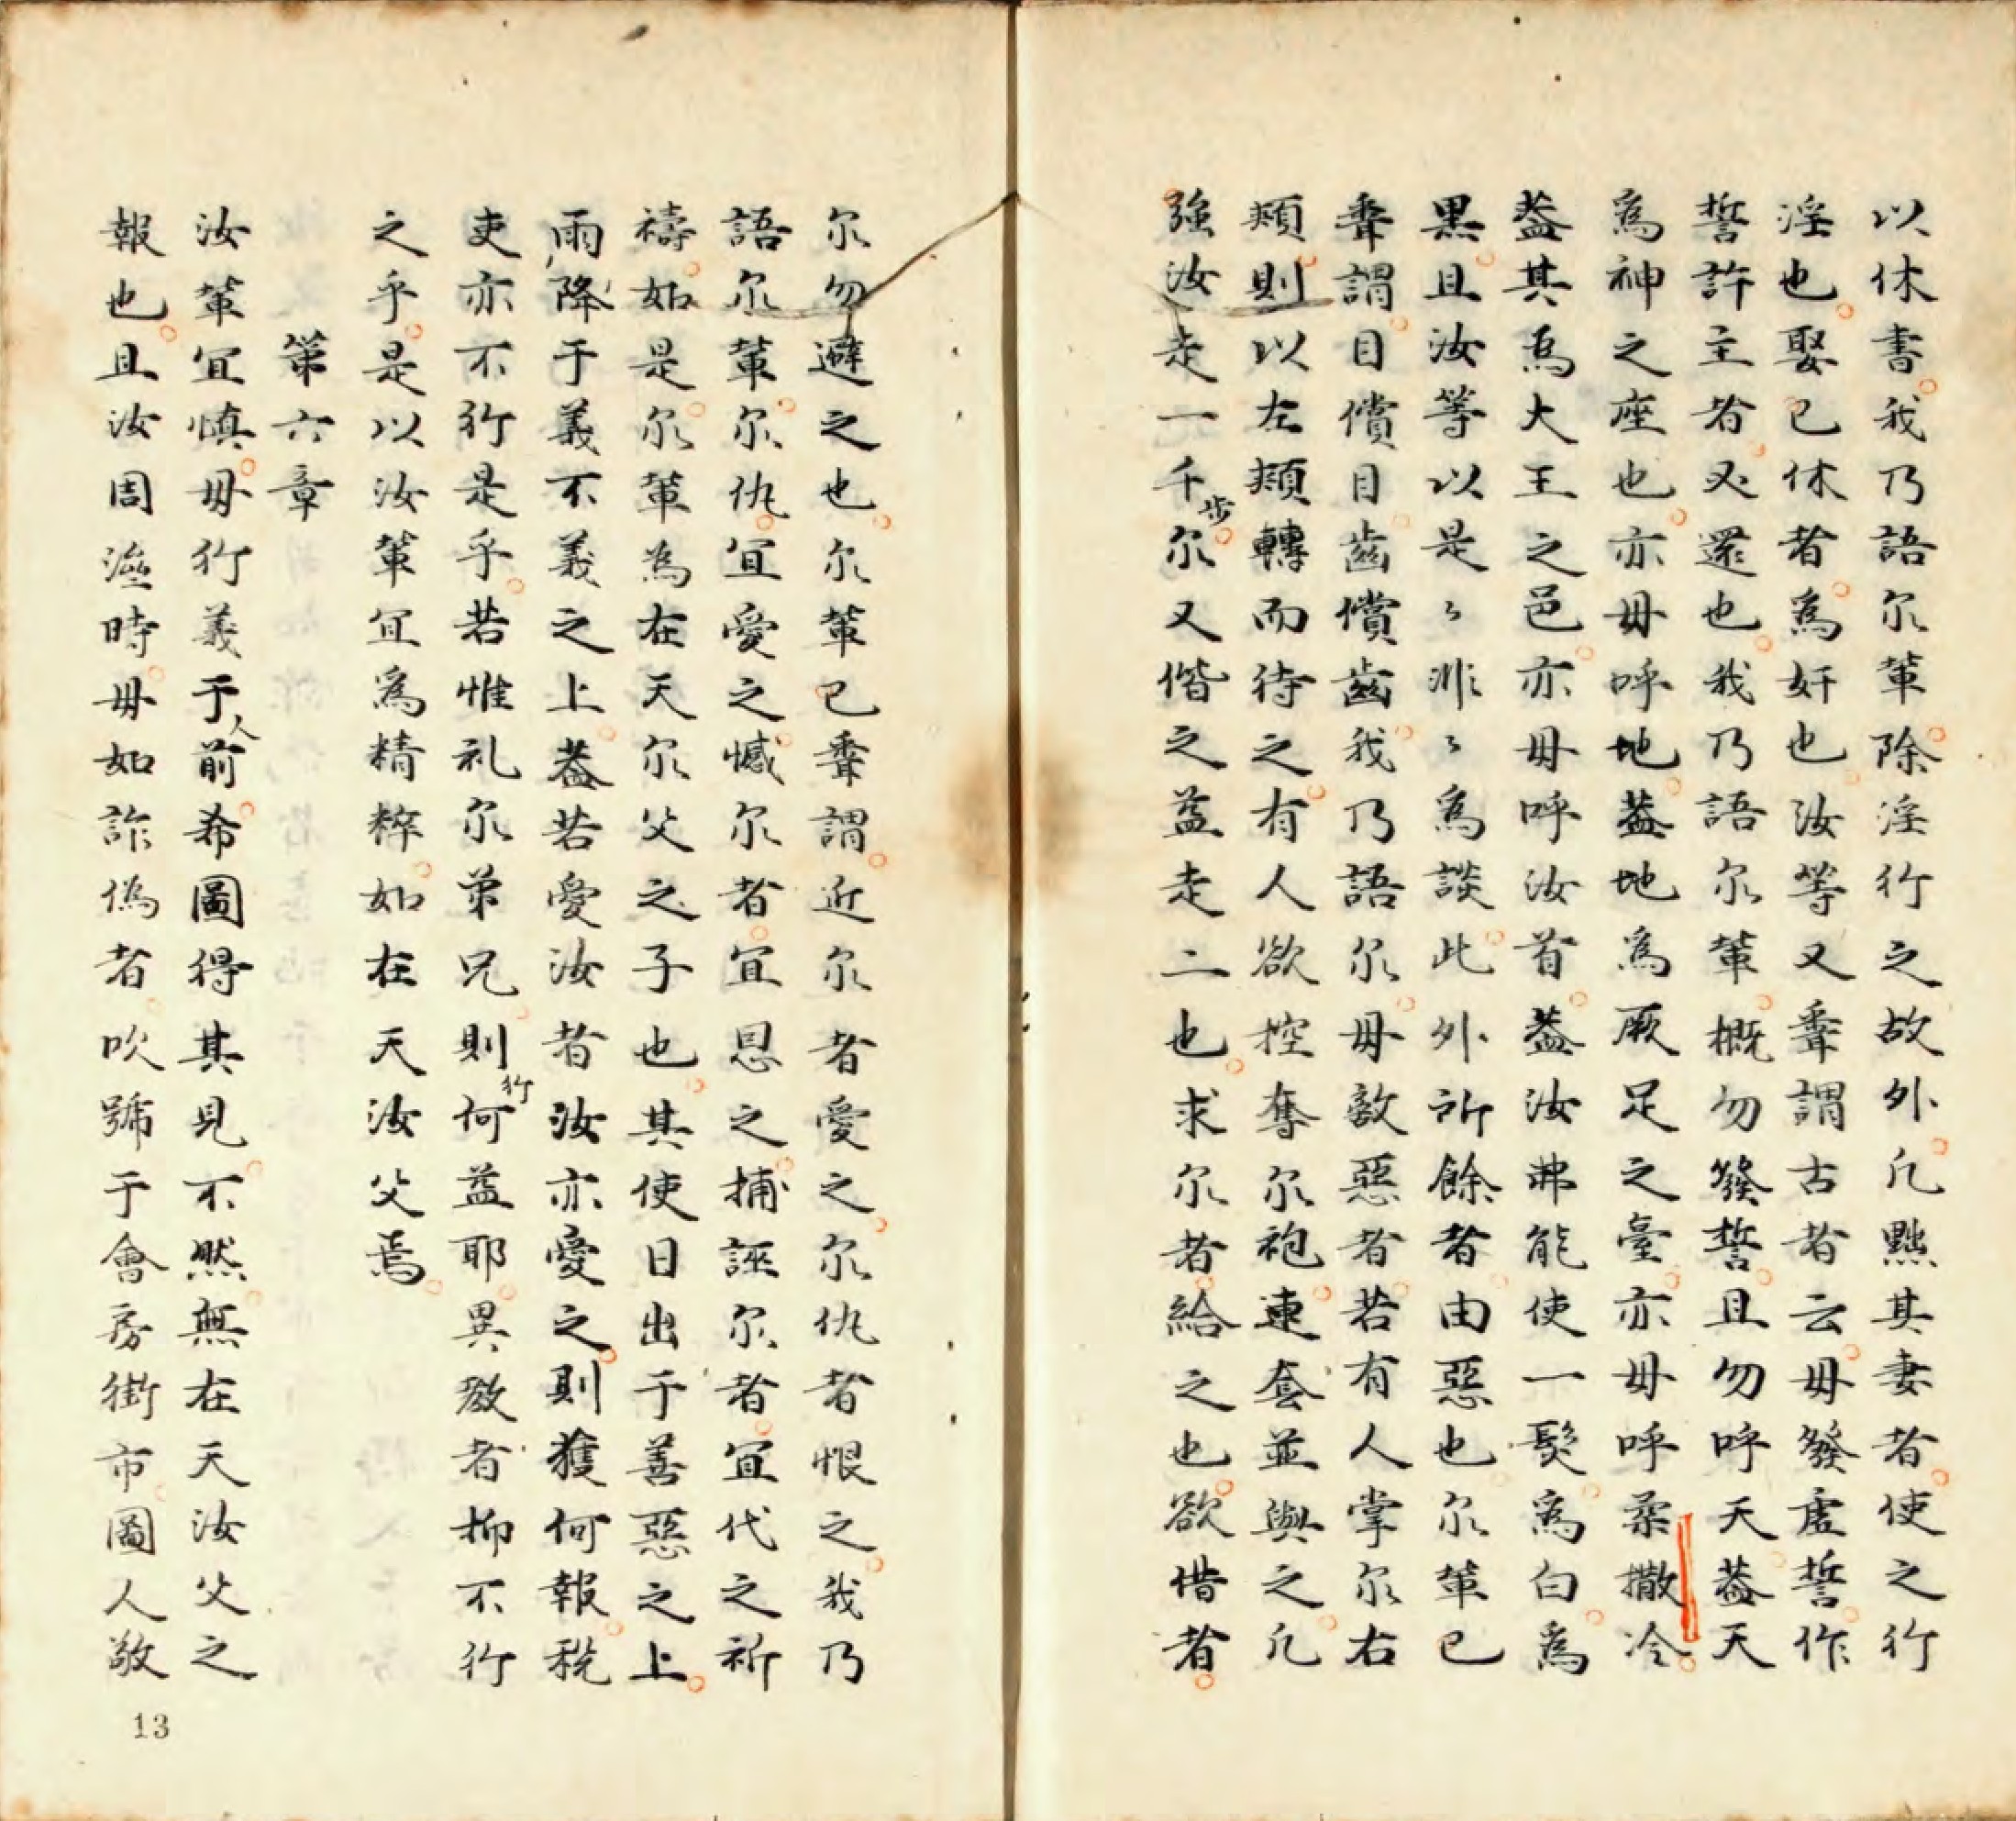 以休書我乃語尔軰除淫行之故外凡黜其妻者使之行
淫也娶已休者為奸也汝等又聞謂古者云毋發虛誓作
誓許主者必還也我乃語尔軰概勿發誓且勿呼天葢天
為神之座也亦毋呼地葢地為厥足之臺亦毋呼柔撒冷
葢其為大王之邑亦毋呼汝首葢汝弗能使一髮為白為
黒且汝等以是〻非〻為談此外所餘者由惡也尔軰已
聞謂目償目齒償齒我乃語尔毋敵惡者若有人掌尔右
頬則以左頬轉而待之有人欲控奪尔袍連套並與之凡
強汝走一千步尔又偕之益走二也求尔者給之也欲借者
尔勿避之也尔軰已聞謂近尔者愛之尔仇者恨之我乃
語尔軰尔仇宜愛之憾尔者宜恩之捕誣尔者宜代之祈
禱如是尔軰為在天尔父之子也其使日出于善惡之上
雨降于義不義之上葢若愛汝者汝亦愛之則獲何報稅
吏亦不行是乎若惟礼尔弟兄則行何益耶異教者抑不行
之乎是以汝軰宜為精粹如在天汝父焉
第六章
汝軰宜慎毋行義于人前希圖得其見不然無在天汝父之
報也且汝周濟時毋如詐偽者吹號于會房街市圖人敬
13